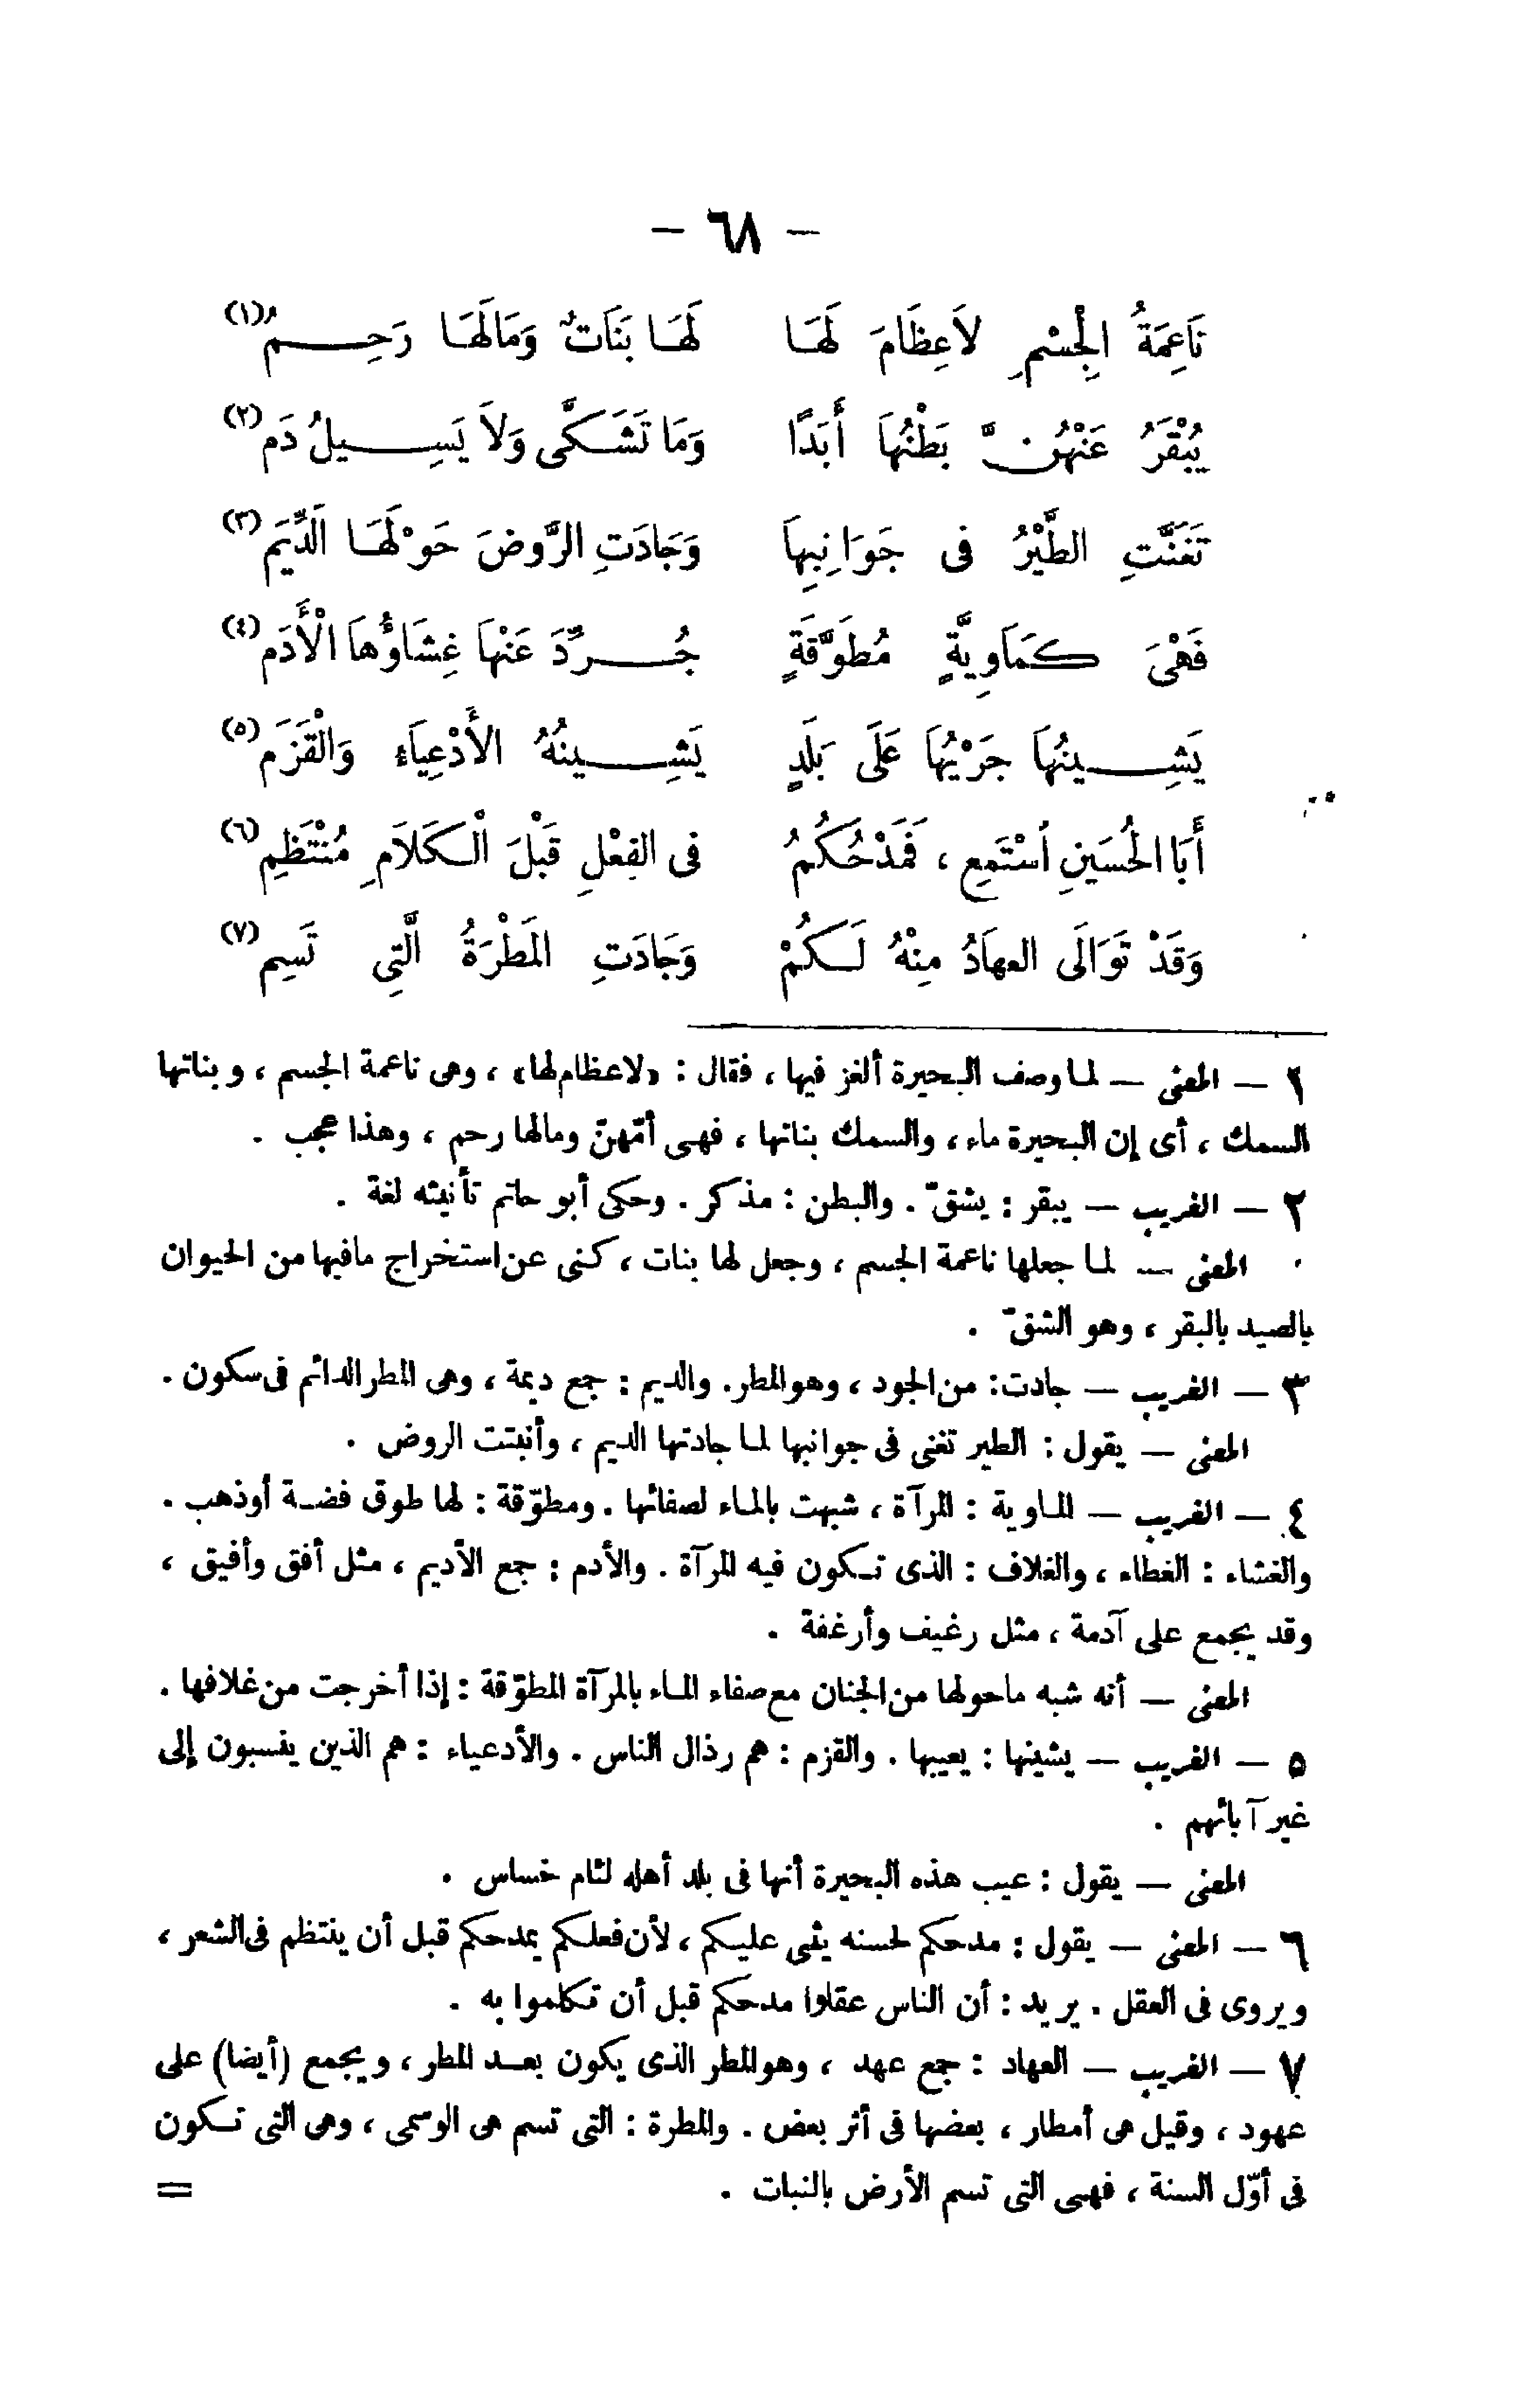 — ٦٨ —
نَاعِمَةُ الْجِسْمِ لاَعِظَامَ لَهَا لَهَا بَنَاتٌ وَمَالَهَا رَحِمُ (١)
يُبْقَرُ عَنْهُنَّ بَطْنُهَا أَبَدًا وَمَا تَشَكَّى وَلاَ يَسِيلُ دَم (٢)
تَغَنَّتِ الطَّيْرُ فى جَوَانِبِهَا وَجَادَتِ الرَّوضَ حَوْلَهَا الَدِّيَم (٣)
فَهْىَ كَمَاوِيَّةٍ مُطَوَّقَةٍ جُرِّدَ عَنْهَا غِشَاؤُهَا الْأَدَم (٤)
يَشِينُهَا جَرْيُهَا عَلَى بَلَدٍ يَشِينُهُ الأَدْعِيَاء وَالْقَزَم (٥)
أَبَا الحُسَينِ اُسْتَمِع ، فَمَدْحُكُمُ فى الفِعْلِ قَبْلَ الْكَلاَمِ مُنْتَظِم (٦)
وَقَدْ تَوَالَى العهَادُ مِنْهُ لَكُمْ وَجَادَتِ المَطْرَةُ الَّتِى تَسِم (٧)
١ — المعنى — لما وصف البحيرة ألغز فيها ، فقال : «لاعظام لها» ، وهى ناعمة الجسم ، وبناتها
السمك ، أى إن البحيرة ماء ، والسمك بناتها ، فهى أمّهنّ ومالها رحم ، وهذا عجب .
٢ — الغريب — يبقر : يشقّ . والبطن : مذكر . وحكى أبو حاتم تأنيثه لغة .
المعنى — لما جعلها ناعمة الجسم ، وجعل لها بنات ، كنى عن استخراج مافيها من الحيوان
بالصيد بالبقر ، وهو الشقّ .
٣ — الغريب — جادت : من الجود ، وهو المطر . والديم : جمع ديمة ، وهى المطر الدائم فى سكون .
المعنى — يقول : الطير تغنى فى جوانبها لما جادتها الديم ، وأنبتت الروض .
٤ — الغريب — الماوية : المرآة ، شبهت بالماء لصفائها . ومطوّقة : لها طوق فضة أوذهب .
والغشاء : الغطاء ، والغلاف : الذى تكون فيه المرآة . والأدم : جمع الأديم ، مثل أفق وأفيق ،
وقد يجمع على آدمة ، مثل رغيف وأرغفة .
المعنى — أنه شبه ماحولها من الجنان مع صفاء الماء بالمرآة المطوّقة : إذا أخرجت من غلافها .
٥ — الغريب — يشينها : يعيبها . والقزم : هم رذال الناس . والأدعياء : هم الذين ينسبون إلى
غير آبائهم .
المعنى — يقول : عيب هذه البحيرة أنها فى بلد أهله لئام خساس .
٦ — المعنى — يقول : مدحكم لحسنه يثنى عليكم ، لأن فعلكم يمدحكم قبل أن ينتظم فى الشعر ،
ويروى فى العقل . يريد : أن الناس عقلوا مدحكم قبل أن تكلموا به .
٧ — الغريب — العهاد : جمع عهد ، وهو المطر الذى يكون بعد المطر ، ويجمع (أيضا) على
عهود ، وقيل هى أمطار ، بعضها فى أثر بعض . والمطرة : التى تسم هى الوسمى ، وهى التى تكون
فى أوّل السنة ، فهى التى تسم الأرض بالنبات . =